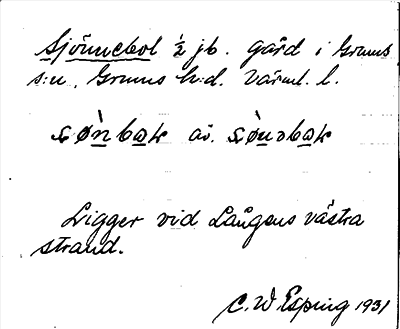 Sjönnebol ½ jb. gård i Grums
s:n, Grums h:d. Värml. l.
Ligger vid Långens västra
strand.
C. W. Esping 1931